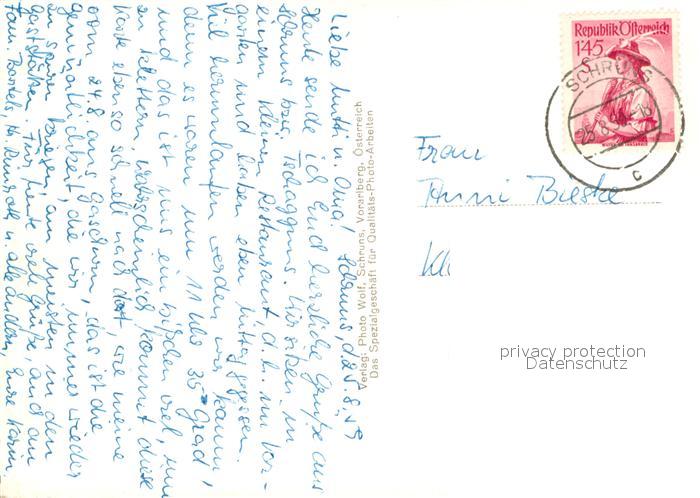 Schruns d. 25.8.59
Liebe Mutti u. Oma!
Heute sende ich Euch herzliche Grüße aus
Schruns bzw. Tschagguns. Wir sitzen in
einem kleinen Restaurant, d.h. im Vor-
garten und haben eben Mittag gegessen.
Viel herumlaufen werden wir kaum,
denn es waren um 11 Uhr 35 Grad,
und das ist uns ein bißchen viel, um
zu klettern. Wahrscheinlich kommt diese
Karte ebenso schnell nach dort wie meine
vom 24.8 aus Gaschurn, das ist die
Gemütlichkeit, die wir immer wieder
zu spüren kriegen, am meisten in den
Gaststätten. Für heute viele Grüße auch an
Fam. Bartels, u. alle anderen, Eure Karin.
Verlag: Photo Wolf, Schruns, Vorarlberg, Österreich
Das Spezialgeschäft für Qualitäts-Photo-Arbeiten
Republik Österreich
1.45
S
SCHRUNS
25.8.
c
Frau
Anni Bieske
Kl
privacy protection
Datenschutz